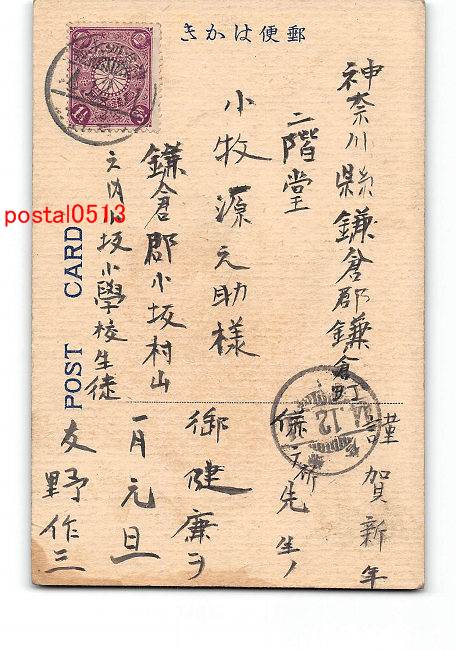 郵便はかき
POST CARD
神奈川縣鎌倉郡鎌倉町
二階堂
小牧源之助様
鎌倉郡小坂村山
之内小坂小學校生徒
謹賀新年
併テ祈先生ノ
御健康ヲ
一月元旦
友野作三
12
postal0513